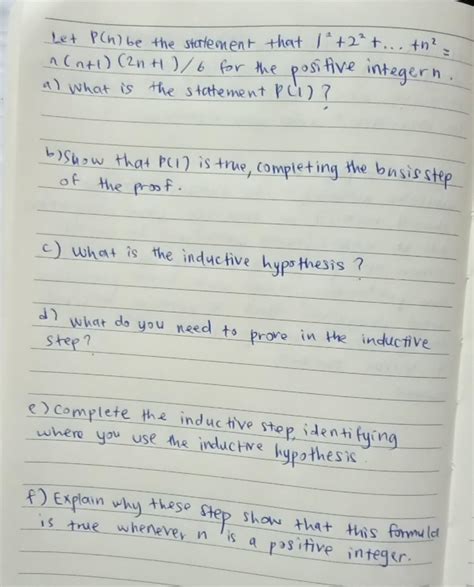 Let P(n) be the statement that 1² + 2² + ... + n² =
n(n+1)(2n+1)/6 for the positive integer n.
a) what is the statement P(1)?
b) Show that P(1) is true, completing the basis step
of the proof.
c) What is the inductive hypothesis?
d) what do you need to prove in the inductive
step?
e) Complete the inductive step, identifying
where you use the inductive hypothesis.
f) Explain why these step show that this formula
is true whenever n is a positive integer.